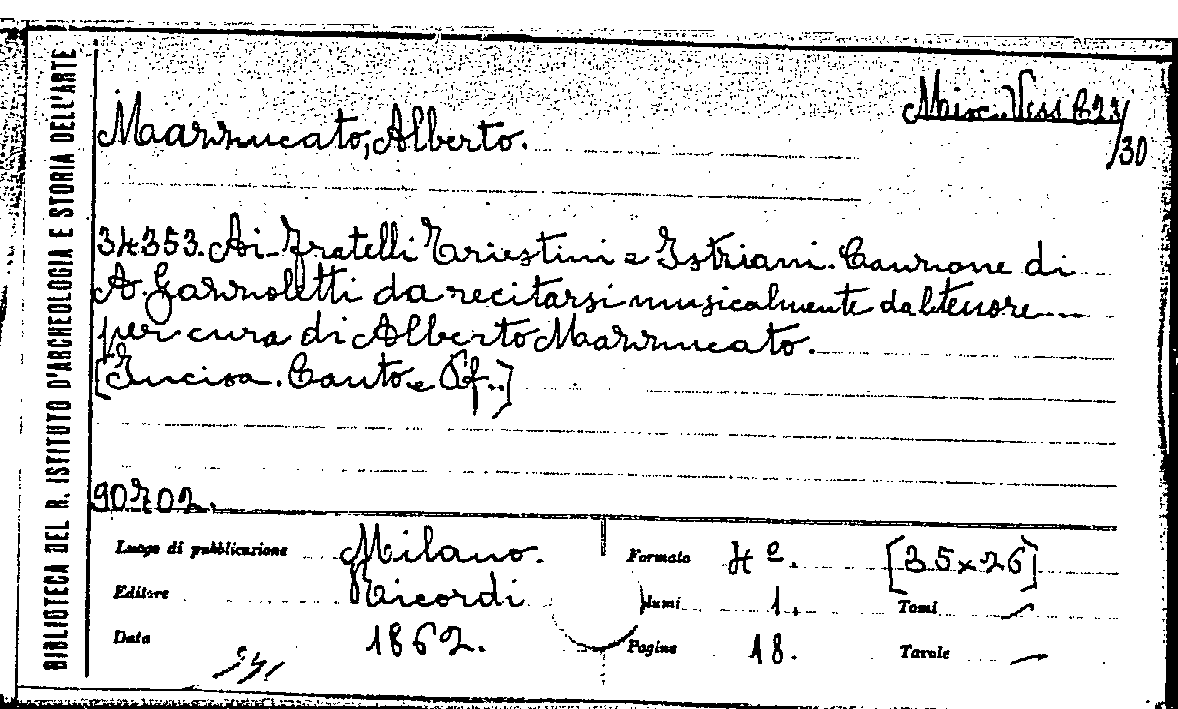 BIBLIOTECA DEL R. ISTITUTO D'ARCHEOLOGIA E STORIA DELL'ARTE
Misc. Vess B 23/
/30
Mazzucato, Alberto.
34353. Ai Fratelli Triestini e Istriani. Canzone di
A. Gazzoletti da recitarsi musicalmente dal tenore
per cura di Alberto Mazzucato.
[Incisa. Canto e Pf..]
90702.
Luogo di pubblicazione Milano. Formato 4º. [35x26]
Editore Ricordi Volumi 1. Tomi —
Data 1862. Pagine 18. Tavole —